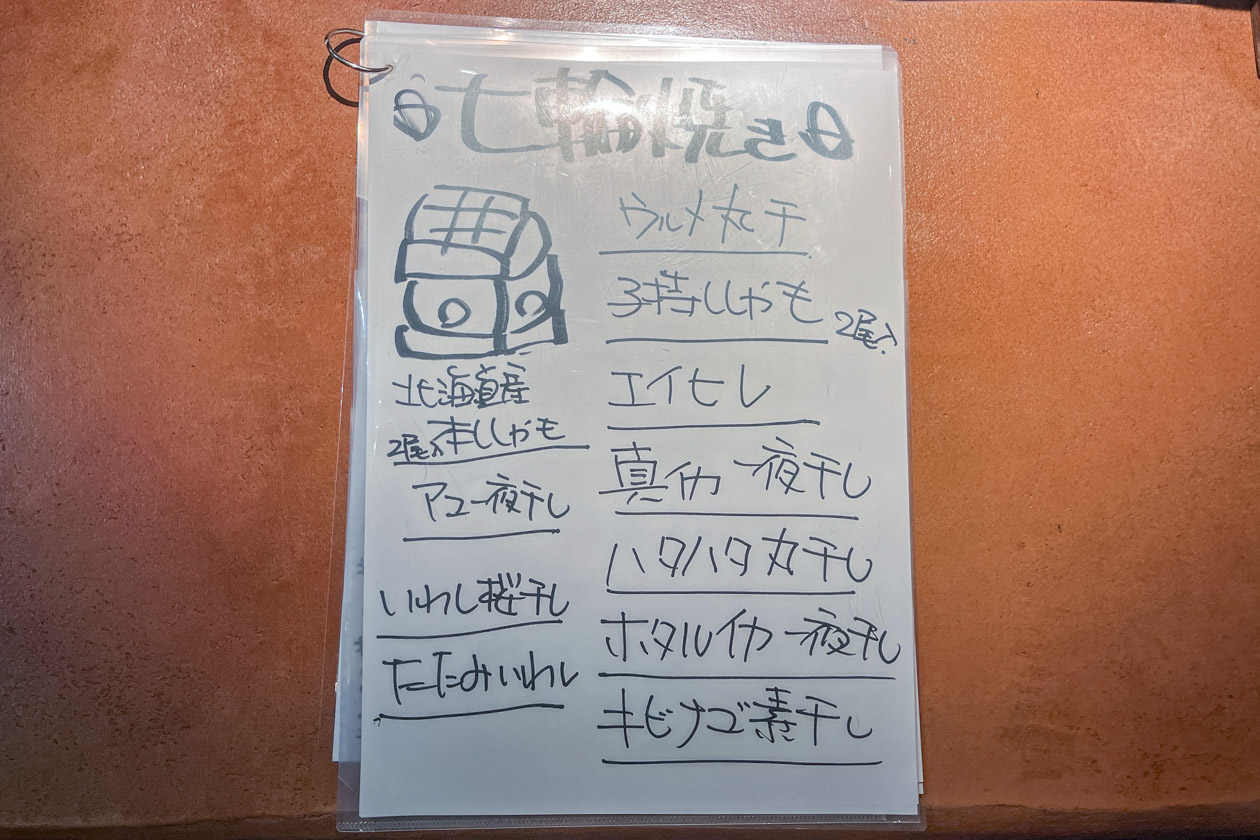 七輪焼き
ウルメ丸干
子持ししゃも 2尾入
エイヒレ
真イカ 一夜干し
ハタハタ 丸干し
ホタルイカ 一夜干し
キビナゴ素干し
北海道産
2尾入本ししゃも
アユ一夜干し
いわし桜干し
たたみいわし